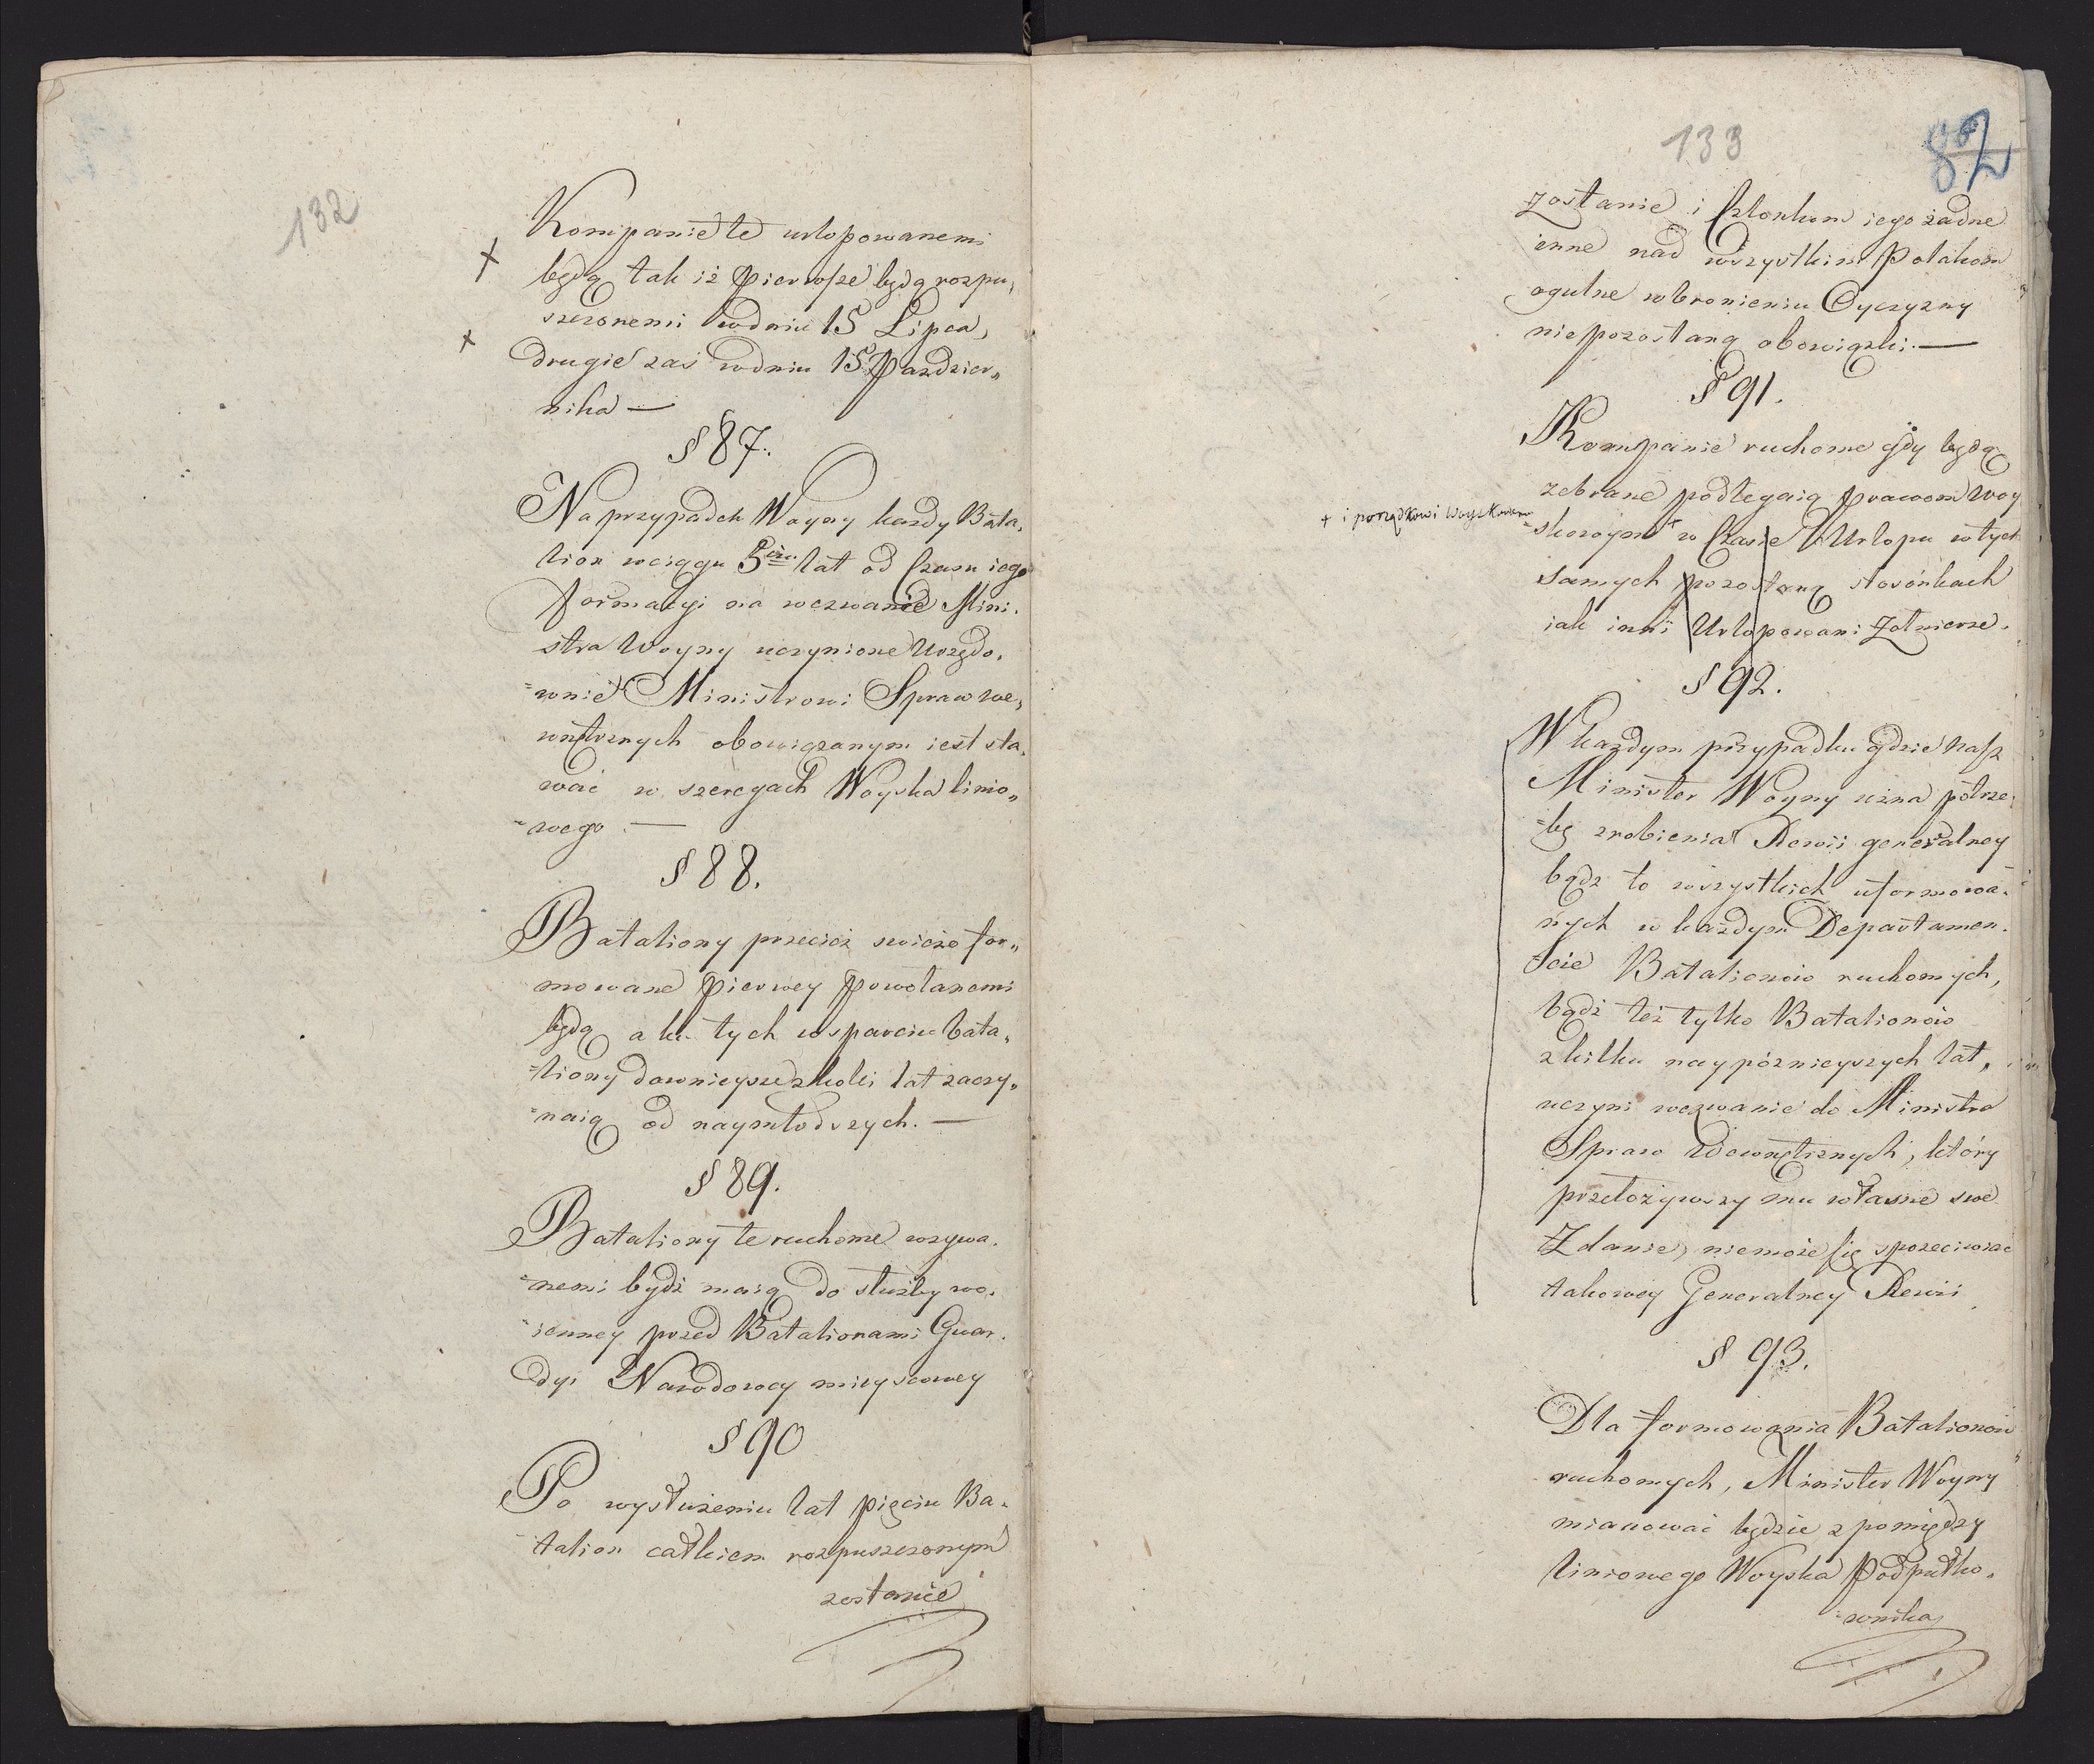 132
Kompanie te urlopowanemi
będą tak iż pierwsze będą rozpu,
szczonemi w dniu 15 Lipca,
drugie zaś w dniu 15 Pazdzier„
nika —
§ 87.
Na przypadek Woyny kazdy Bata,
lion w ciągu 5ciu lat od Czasu iego
formacyi na wezwanie Mini.
stra Woyny uczynione Urzędo,
=wnie Ministrowi Spraw we,
wnętrznych obowiązanym iest sta,
wać w szeregach Woyska linio„
=wego. —
§ 88.
Bataliony przecież swieżo for„
mowane pierwey powołanemi
będą a ku tych wsparciu bata„
=liony dawnieysze z kolei lat zaczy„
=naiąc od naymłodszych. —
§ 89.
Bataliony te ruchome wzywa.
=nemi bydź maią do służby wo,
=ienney przed Batalionami Gwar.
dyi Narodowey mieyscowey
§ 90
Po wysłużeniu lat pięciu Ba.
talion całkiem rozpuszczonym
zostanie
133
82
zostanie i Członkom iego żadne
inne nad wszystkim Polakom
ogulne w bronieniu Oyczyzny
nie pozostaną obowiązki. —
§ 91.
Kompanie ruchome gdy będą
zebrane podlegaią prawom woy
+ i porządkowi woyskowemu
=skowym + w Czasie Urlopu w tych
samych pozostaną stosónkach
iak inni Urlopowani Zołnierze.
§ 92.
W kazdym przypadku gdzie nasz
Minister Woyny uzna potrze,
=bę zrobienia Rewii generalney
bądz to wszystkich uformowa.
nych w każdym Departamen.
cie Batalionów ruchomych,
bądź też tylko Batalionów
z kilku naypóznieyszych lat,
uczyni wezwanie do Ministra
Spraw Wewnętrznych, który
przełożywszy mu własne swe
Zdanie, niemoże się sprzeciwiac
takowey Generalney Rewii
§ 93.
Dla formowania Batalionow
ruchomych, Minister Woyny
mianować będzie z pomiędzy
liniowego Woyska Podpułko.
=wnika